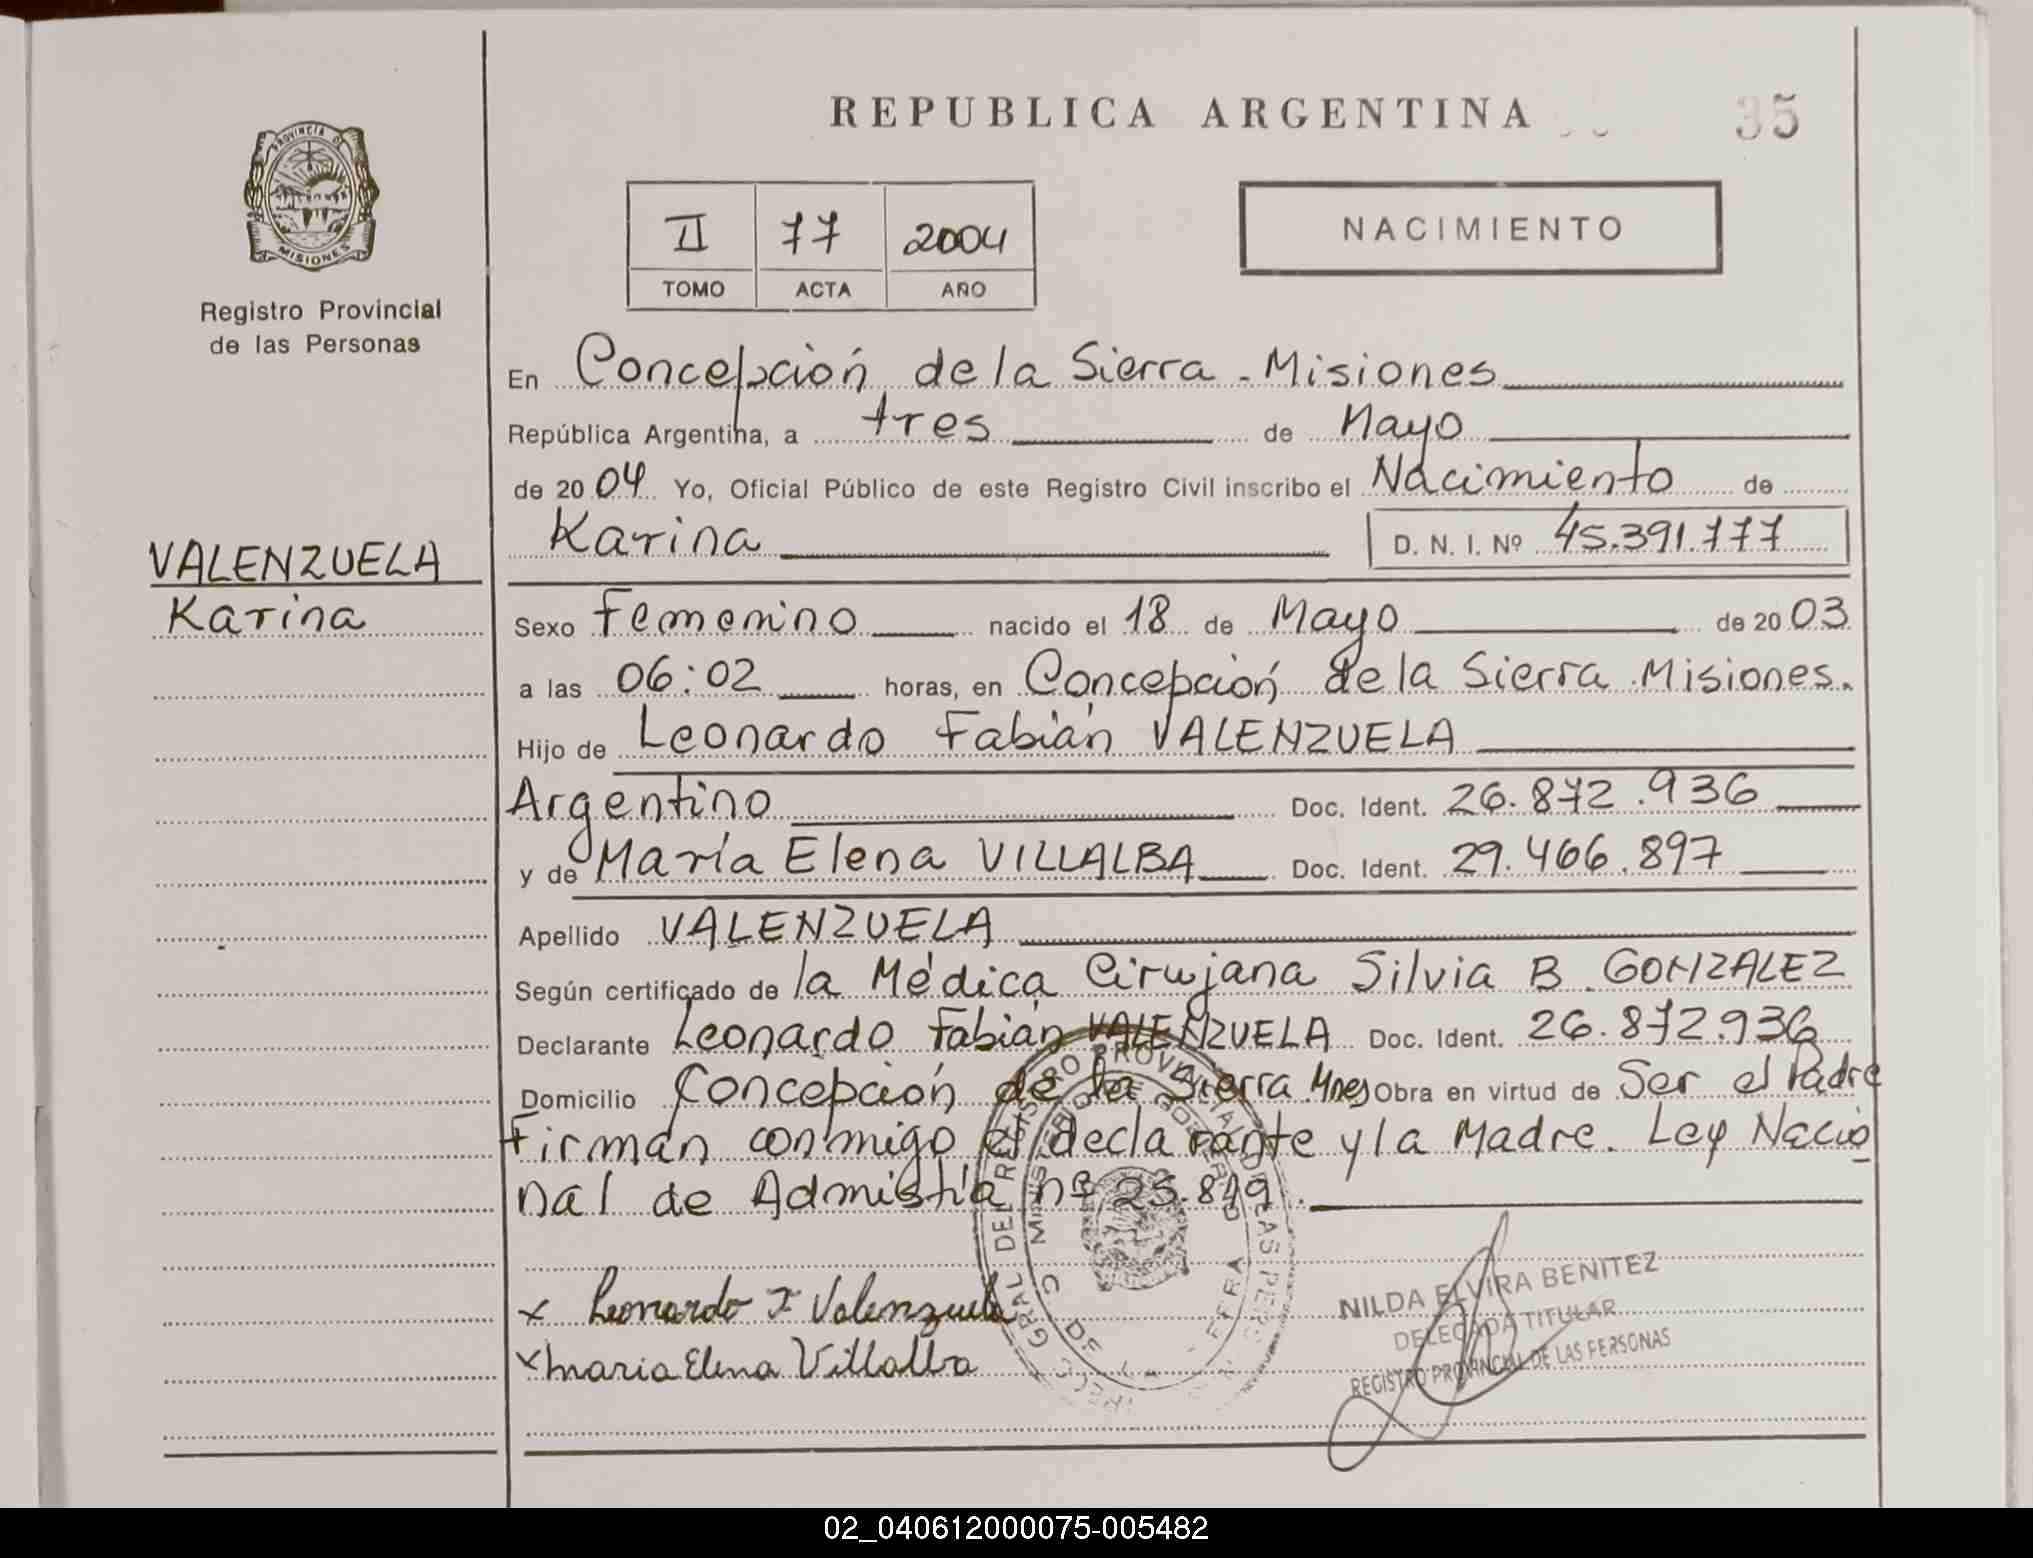 REPUBLICA ARGENTINA
35
PROVINCIA DE
MISIONES
Registro Provincial
de las Personas
II 77 2004
TOMO ACTA AÑO
NACIMIENTO
En Concepción de la Sierra - Misiones
República Argentina, a tres de Mayo
de 2004 Yo, Oficial Público de este Registro Civil inscribo el Nacimiento de
Karina D. N. I. Nº 45.391.777
VALENZUELA
Karina
Sexo Femenino nacido el 18 de Mayo de 2003
a las 06:02 horas, en Concepción de la Sierra Misiones.
Hijo de Leonardo Fabián VALENZUELA
Argentino Doc. Ident. 26.872.936
y de María Elena VILLALBA Doc. Ident. 29.466.897
Apellido VALENZUELA
Según certificado de la Médica Cirujana Silvia B. GONZALEZ
Declarante Leonardo Fabián VALENZUELA Doc. Ident. 26.872.936
Domicilio Concepción de la Sierra Mnes Obra en virtud de Ser el Padre
Firman conmigo el declarante y la Madre. Ley Nacio
nal de Admistía nº 25.819.
x Leonardo F Valenzuela
x Maria Elena Villalba
NILDA ELVIRA BENITEZ
DELEGADA TITULAR
REGISTRO PROVINCIAL DE LAS PERSONAS
02_040612000075-005482